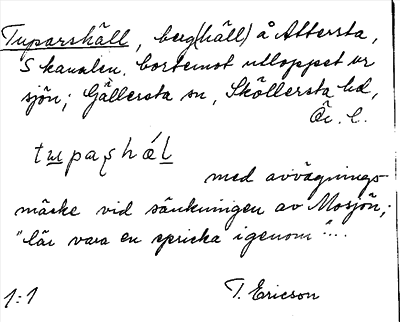 Tuparshäll, berg(häll) å Attersta,
S kanalen, bortemot utloppet ur
sjön; Gällersta sn, Sköllersta hd,
Ör. l.
tupaʂhǽl
med avvägnings-
märke vid sänkningen av Mosjön;
"lär vara en spricka igenom"...
1:1 T. Ericson